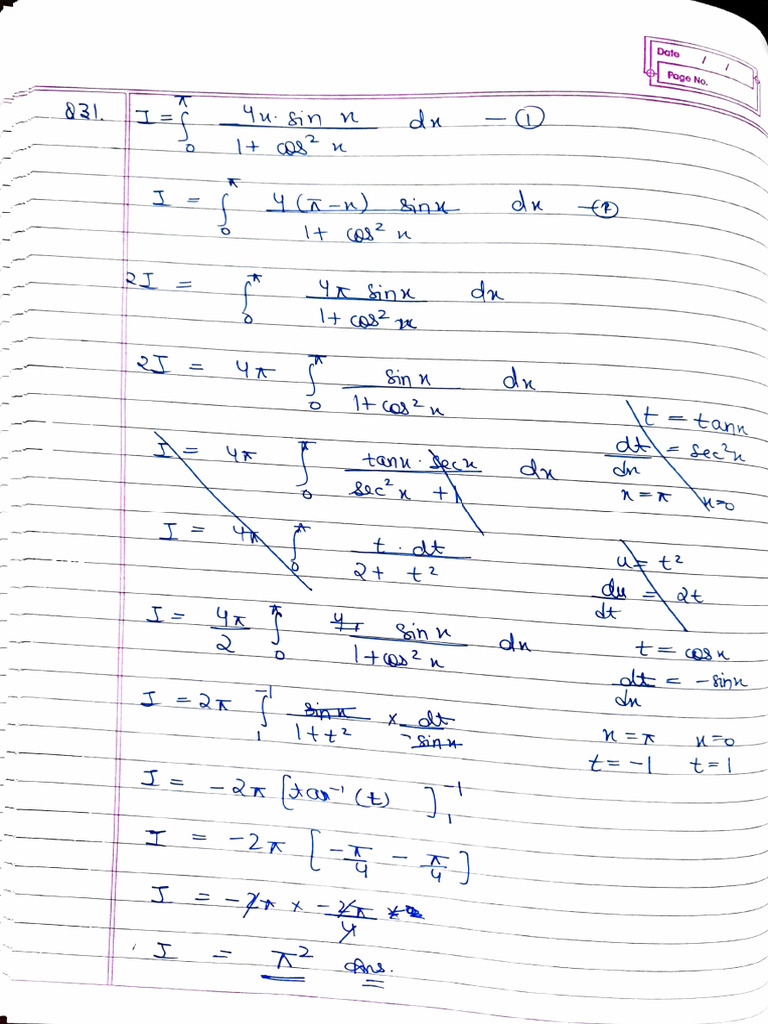 Date / /
Page No.
831. I = ∫₀^π 4x·sin x / 1 + cos² x dx — ①
I = ∫₀^π 4(π−x) sinx / 1 + cos² x dx — ②
2I = ∫₀^π 4π sinx / 1 + cos² x dx
2I = 4π ∫₀^π sin x / 1 + cos² x dx
t = tanx
dt/dx = sec²x
x = π x=0
I = 4π ∫₀^π tanx · secx / sec² x + 1 dx
I = 4π ∫₀^π t · dt / 2 + t²
u = t²
du/dt = 2t
I = 4π/2 ∫₀^π sin x / 1 + cos² x dx
t = cosx
dt/dx = −sinx
x = π x=0
t = −1 t = 1
I = 2π ∫₁^−1 sin x / 1 + t² × dt / −sin x
I = −2π [tan⁻¹(t)]₁^−1
I = −2π [−π/4 − π/4]
I = −2π × −2π/4
I = π² Ans.